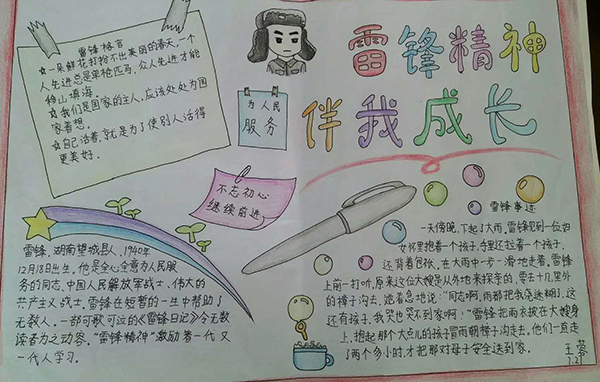 雷锋格言
☆一朵鲜花打扮不出美丽的春天,一个
人先进总是单枪匹马,众人先进才能
移山填海。
☆我们是国家的主人,应该处处为国
家着想。
☆自己活着,就是为了使别人活得
更美好。
为人民
服务
雷锋精神
伴我成长
不忘初心
继续前进
雷锋,湖南望城县人,1940年
12月18日出生,他是全心全意为人民服
务的同志,中国人民解放军战士,伟大的
共产主义战士,雷锋在短暂的一生中帮助了
无数人。一部可歌可泣的《雷锋日记》令无数
读者为之动容。“雷锋精神”激励着一代又
一代人学习。
雷锋事迹
一天傍晚,下起了大雨,雷锋见到一位妇
女怀里抱着一个孩子,手里还拉着一个孩子,
还背着包袱,在大雨中一步一滑地走着。雷锋
上前一打听,原来这位大嫂是从外地来探亲的,要去十几里外
的樟子沟去,她着急地说:“同志啊,雨都把我浇迷糊了,这
还有孩子,我哭也哭不到家啊!”雷锋把雨衣披在大嫂身
上,抱起那个大点儿的孩子冒雨朝樟子沟走去。他们一直走
了两个多小时,才把那对母子安全送到家。
王蓉
7.21